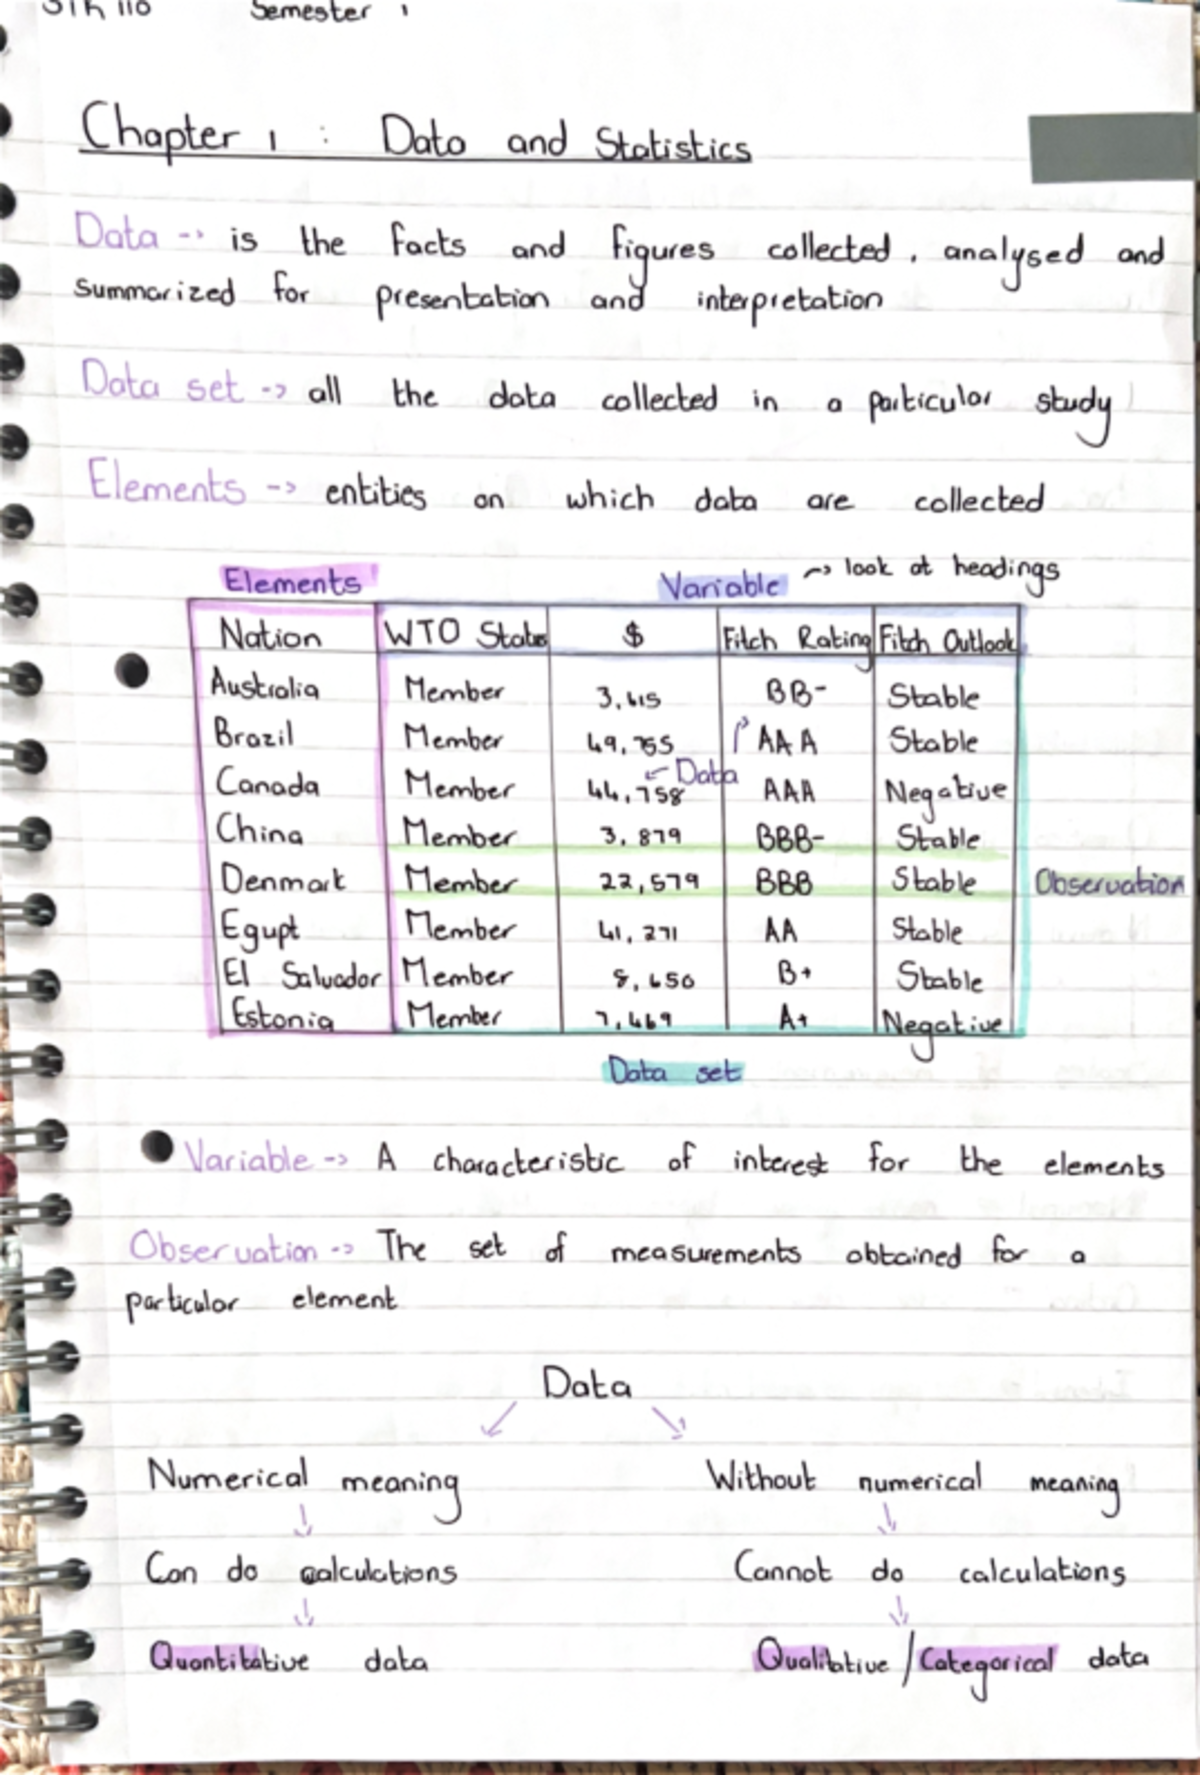 STK 110 Semester 1
Chapter 1 : Data and Statistics
Data -> is the facts and figures collected, analysed and
summarized for presentation and interpretation
Data set -> all the data collected in a particular study
Elements -> entities on which data are collected
Elements Variable -> look at headings
Nation WTO Status $ Fitch Rating Fitch Outlook
Australia Member 3,615 BB- Stable
Brazil Member 49,755 AAA Stable
<- Data
Canada Member 44,758 AAA Negative
China Member 3,879 BBB- Stable
Denmark Member 22,579 BBB Stable Observation
Egupt Member 41,271 AA Stable
El Salvador Member 8,650 B+ Stable
Estonia Member 7,469 A+ Negative
Data set
Variable -> A characteristic of interest for the elements
Observation -> The set of measurements obtained for a
particular element
Data
Numerical meaning Without numerical meaning
Can do calculations Cannot do calculations
Quantitative data Qualitative / Categorical data